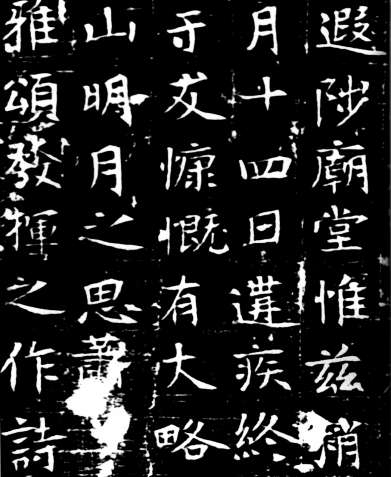 遐陟廟堂惟茲
月十四日遘疾終
于友慷慨有大略
山明月之思蕭
雅頌發揮之作詩